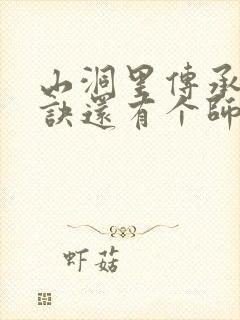 山洞里傳承
訣還有个師
虾菇